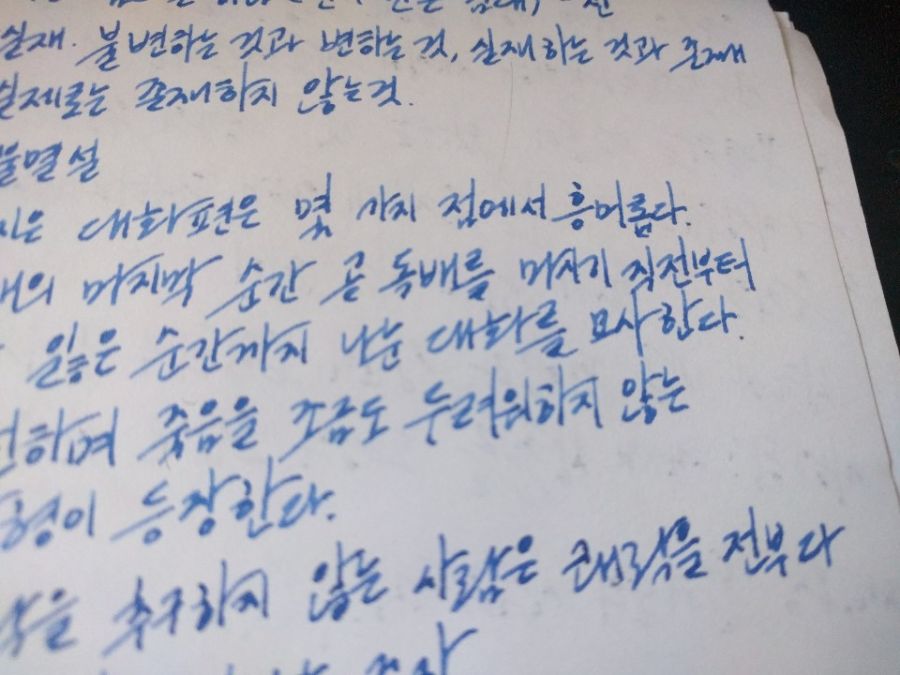 실재. 불변하는 것과 변하는 것, 실재하는 것과 존재
실제로는 존재하지 않는것.
불멸설
대화편은 몇 가지 점에서 흥미롭다.
마지막 순간 곧 독배를 마시기 직전부터
잃은 순간까지 나눈 대화를 묘사한다.
죽음을 조금도 두려워하지 않는
등장한다.
추구하지 않는 사람은 쾌락을 전부다